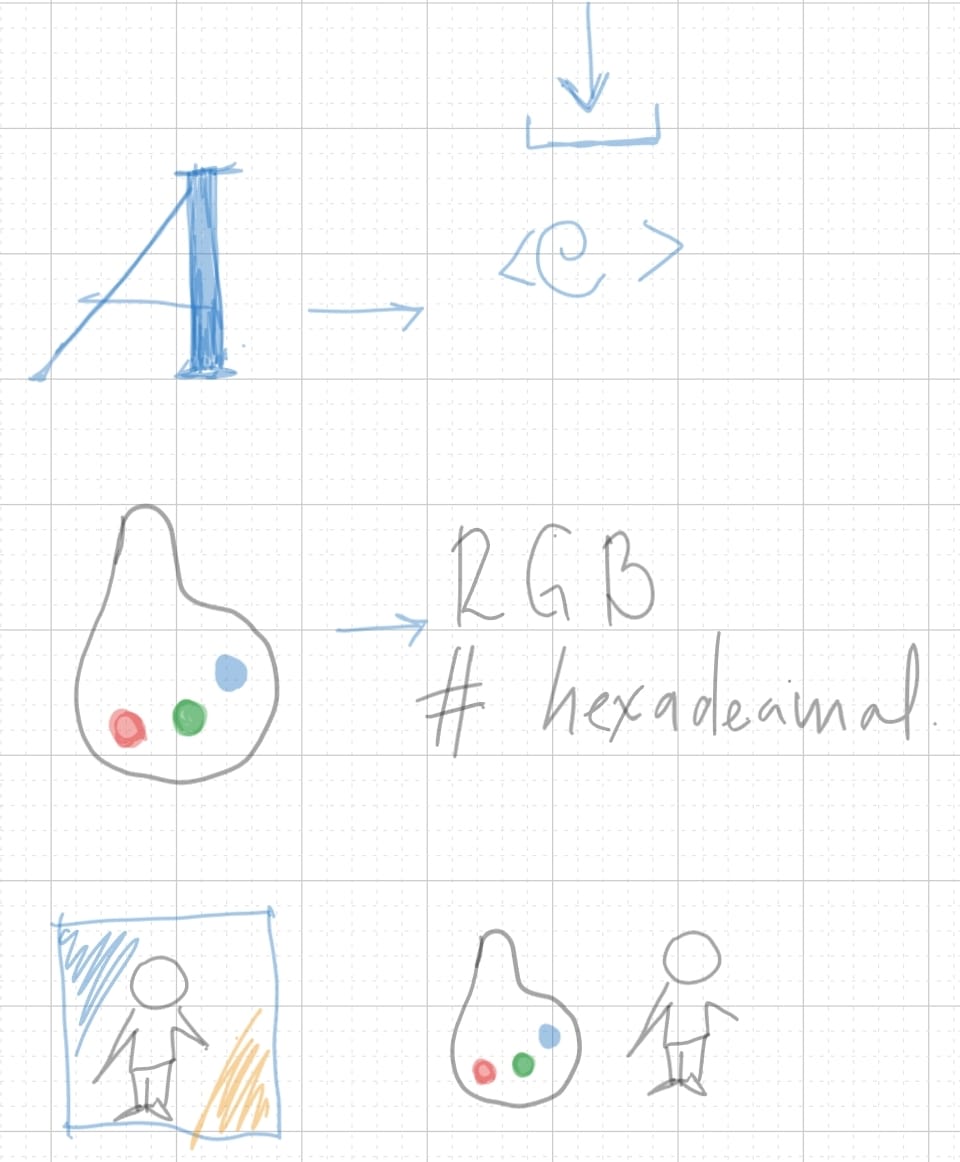 A
<e>
RGB
# hexadecimal.